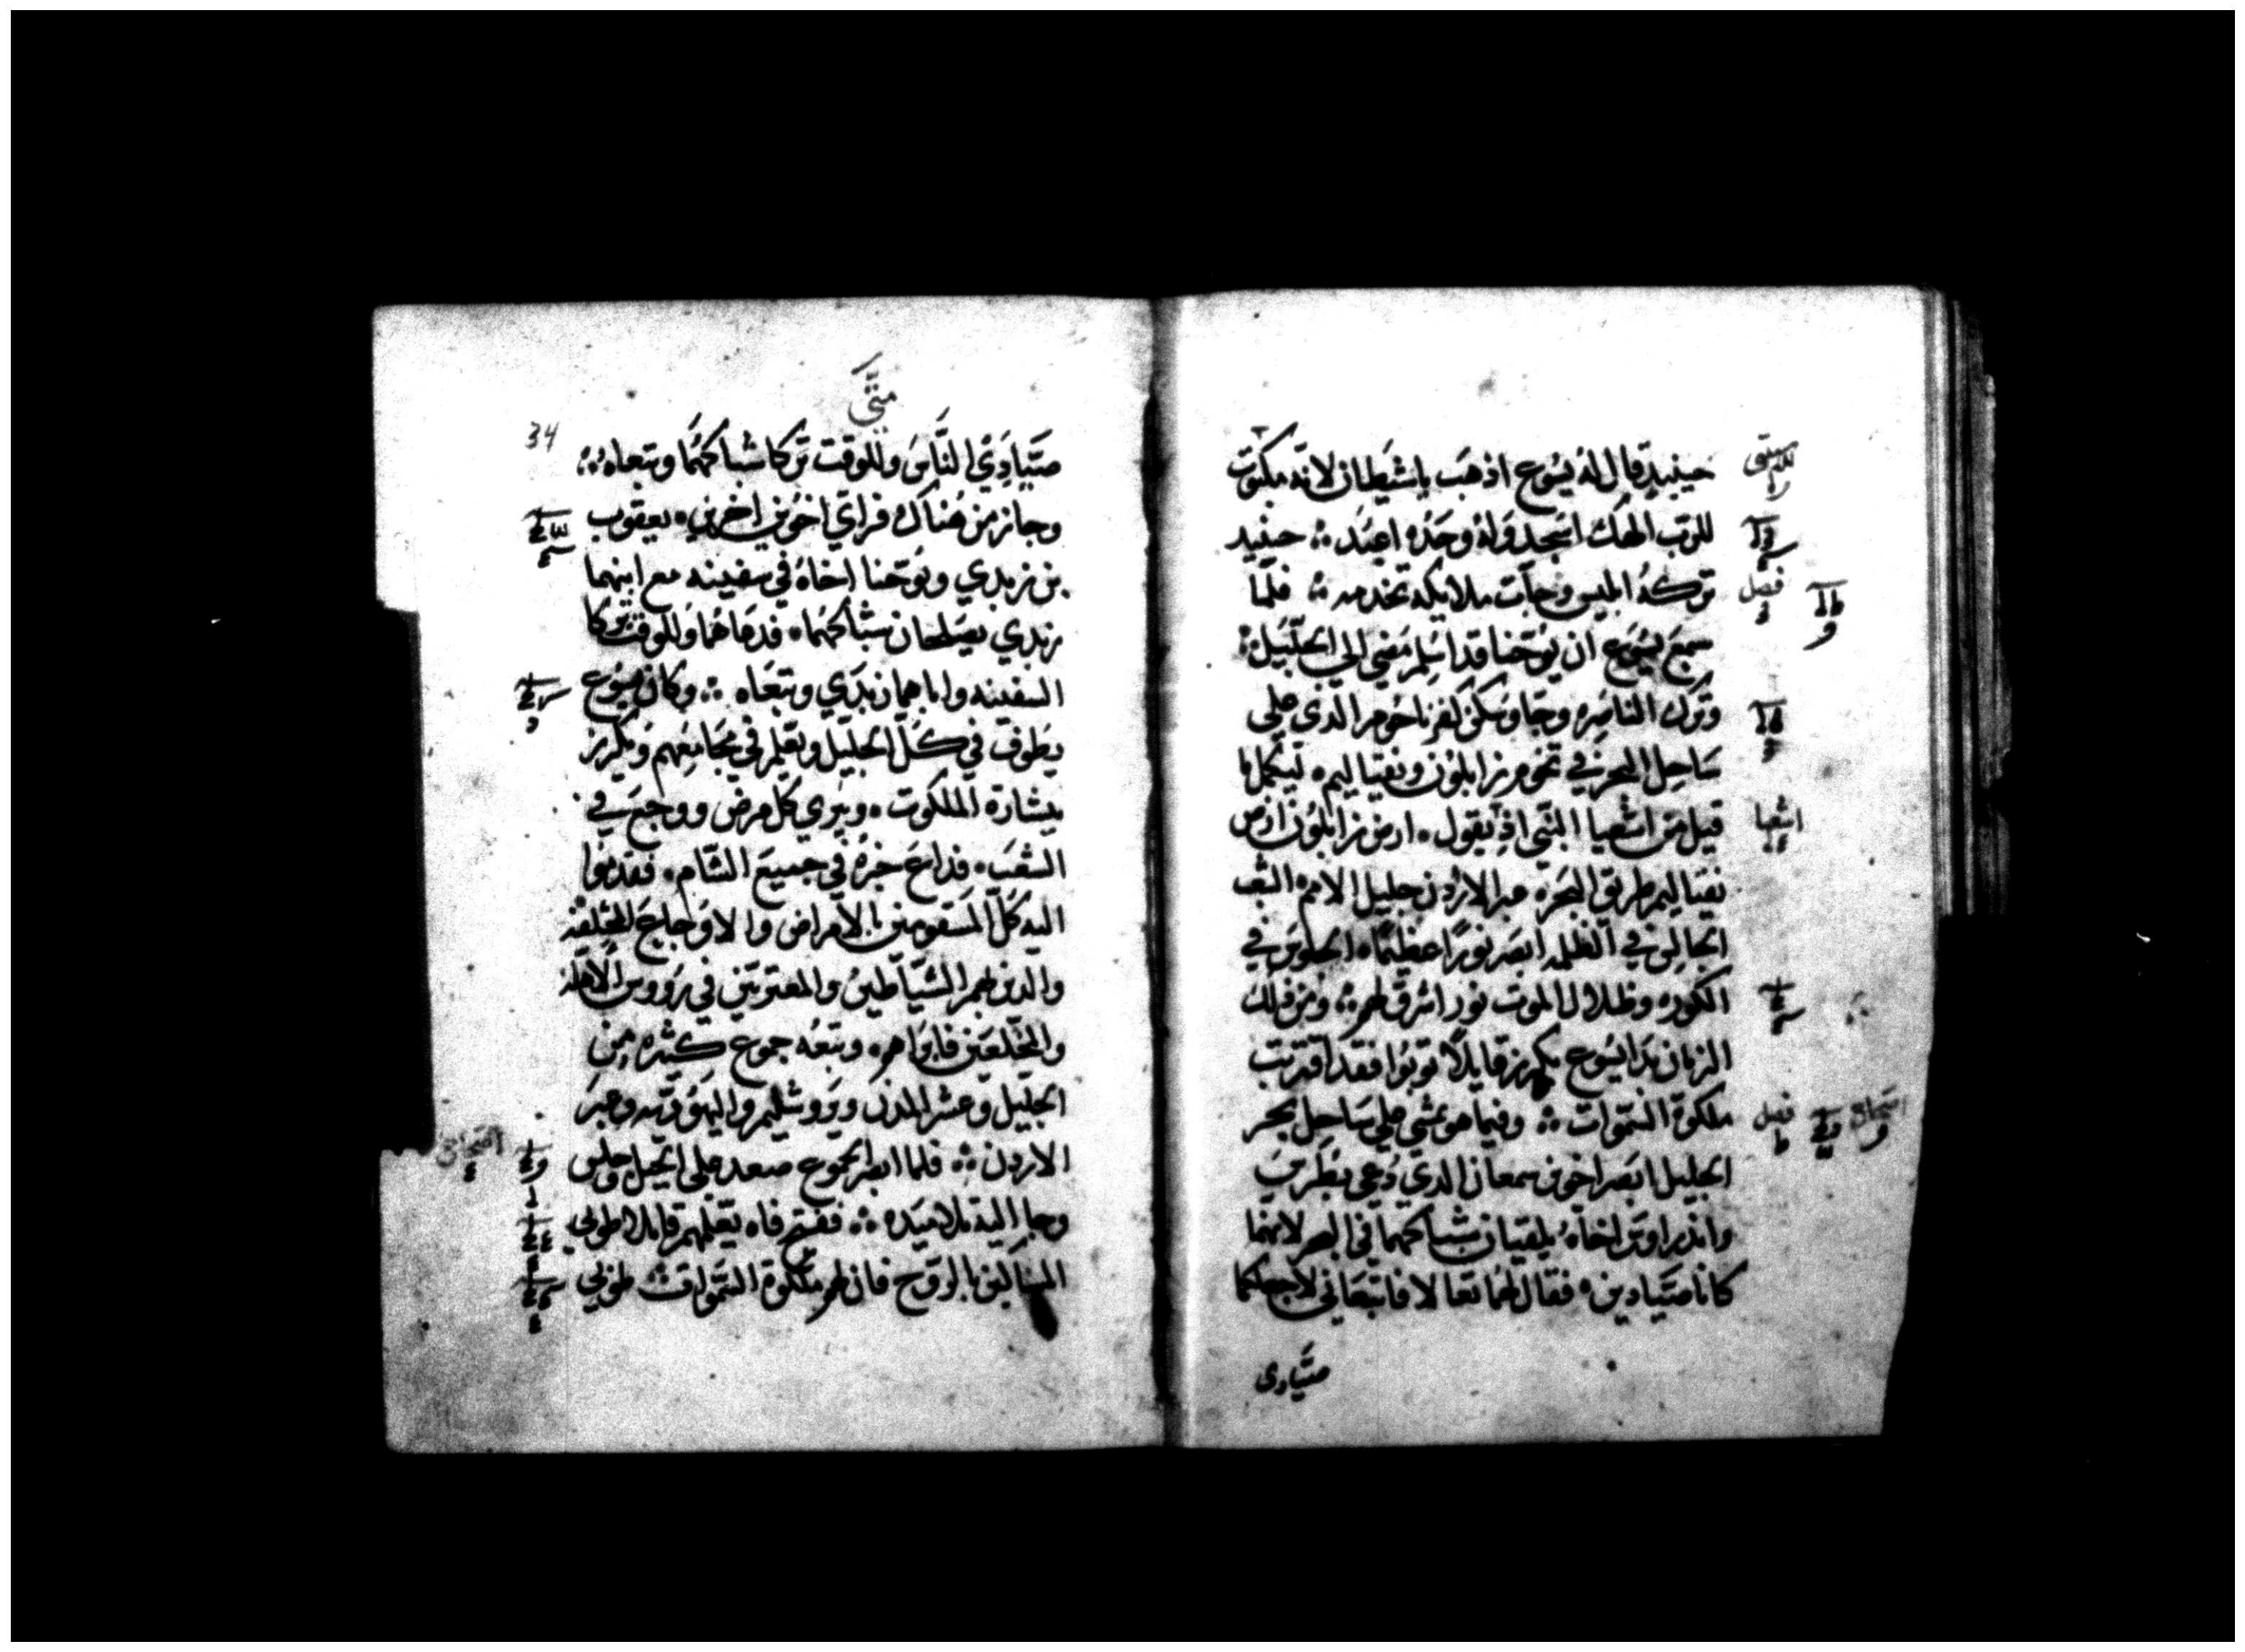 حينيذ قال له يسوع اذهب ياشيطان لانه مكتوب
للرب الهك اسجد وله وحده اعبد ؞ حينيذ
فصل
تركه ابليس وجات ملايكه تخدمه ؞ فلما
سمع يسوع ان يوحنا قد اسلم مضي الي الجليل ؞
وترك الناصره وجا وسكن كفرناحوم الذي علي
ساحل البحر في تخوم زابلون ونفتاليم ليكمل ما
اشعيا
قيل من اشعيا النبي اذ يقول ارض زابلون ارض
نفتاليم طريق البحر عبر الاردن جليل الامم الشعب
الجالس في الظلمه ابصر نورا عظيما الجلوس في
الكوره وظلال الموت نور اشرق لهم ؞ ومن ذلك
الزمان بدا يسوع يكرز قايلا توبوا فقد اقتربت
فصل
ملكوة السموات ؞ وفيما هو يمشي علي ساحل بحر
الجليل ابصر اخوين سمعان الذي دعي بطرس
واندراوس اخاه يلقيان شباكهما في البحر لانهما
كانا صيادين فقال لهما تعالا فاتبعاني لاجعلكما
صيادي
متى
34
صيادي الناس وللوقت تركا شباكهما وتبعاه ؞
وجاز من هناك فراي اخوين اخرين يعقوب
بن زبدي ويوحنا اخاه في سفينه مع ابيهما
زبدي يصلحان شباكهما فدعاهما وللوقت تركا
السفينه واباهما زبدي وتبعاه ؞ وكان يسوع
يطوف في كل الجليل ويعلم في مجامعهم ويكرز
ببشارة الملكوت ويبري كل مرض ووجع في
الشعب فذاع خبره في جميع الشام فقدموا
اليه كل المسقومين بالامراض والاوجاع المختلفه
والذين لهم الشياطين والمعتوهين في رووس الاهله
والمخلعين فابراهم وتبعه جموع كثيره من
الجليل وعشر المدن ويروشليم واليهوديه وعبر
الاردن ؞ فلما ابصر الجموع صعد علي الجبل وجلس
وجا اليه تلاميذه ؞ ففتح فاه يعلمهم قايلا طوبي
المساكين بالروح فان لهم ملكوة السموات ؞ طوبي